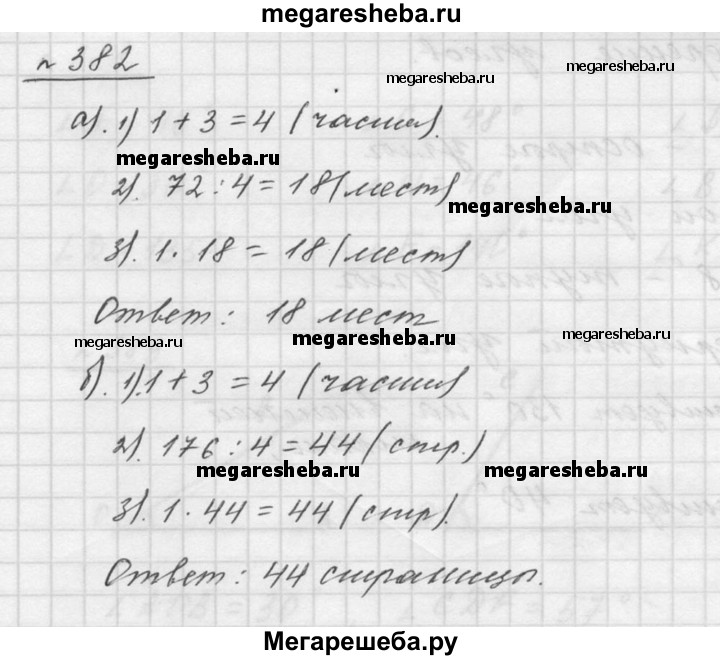 megaresheba.ru
n 382
megaresheba.ru
а). 1) 1 + 3 = 4 (части).
megaresheba.ru
2). 72 : 4 = 18 (мест)
megaresheba.ru
3). 1 · 18 = 18 (мест)
Ответ: 18 мест
megaresheba.ru
megaresheba.ru
б). 1). 1 + 3 = 4 (части)
2). 176 : 4 = 44 (стр.)
megaresheba.ru
megaresheba.ru
3). 1 · 44 = 44 (стр).
Ответ: 44 страницы.
Мегарешеба.ру